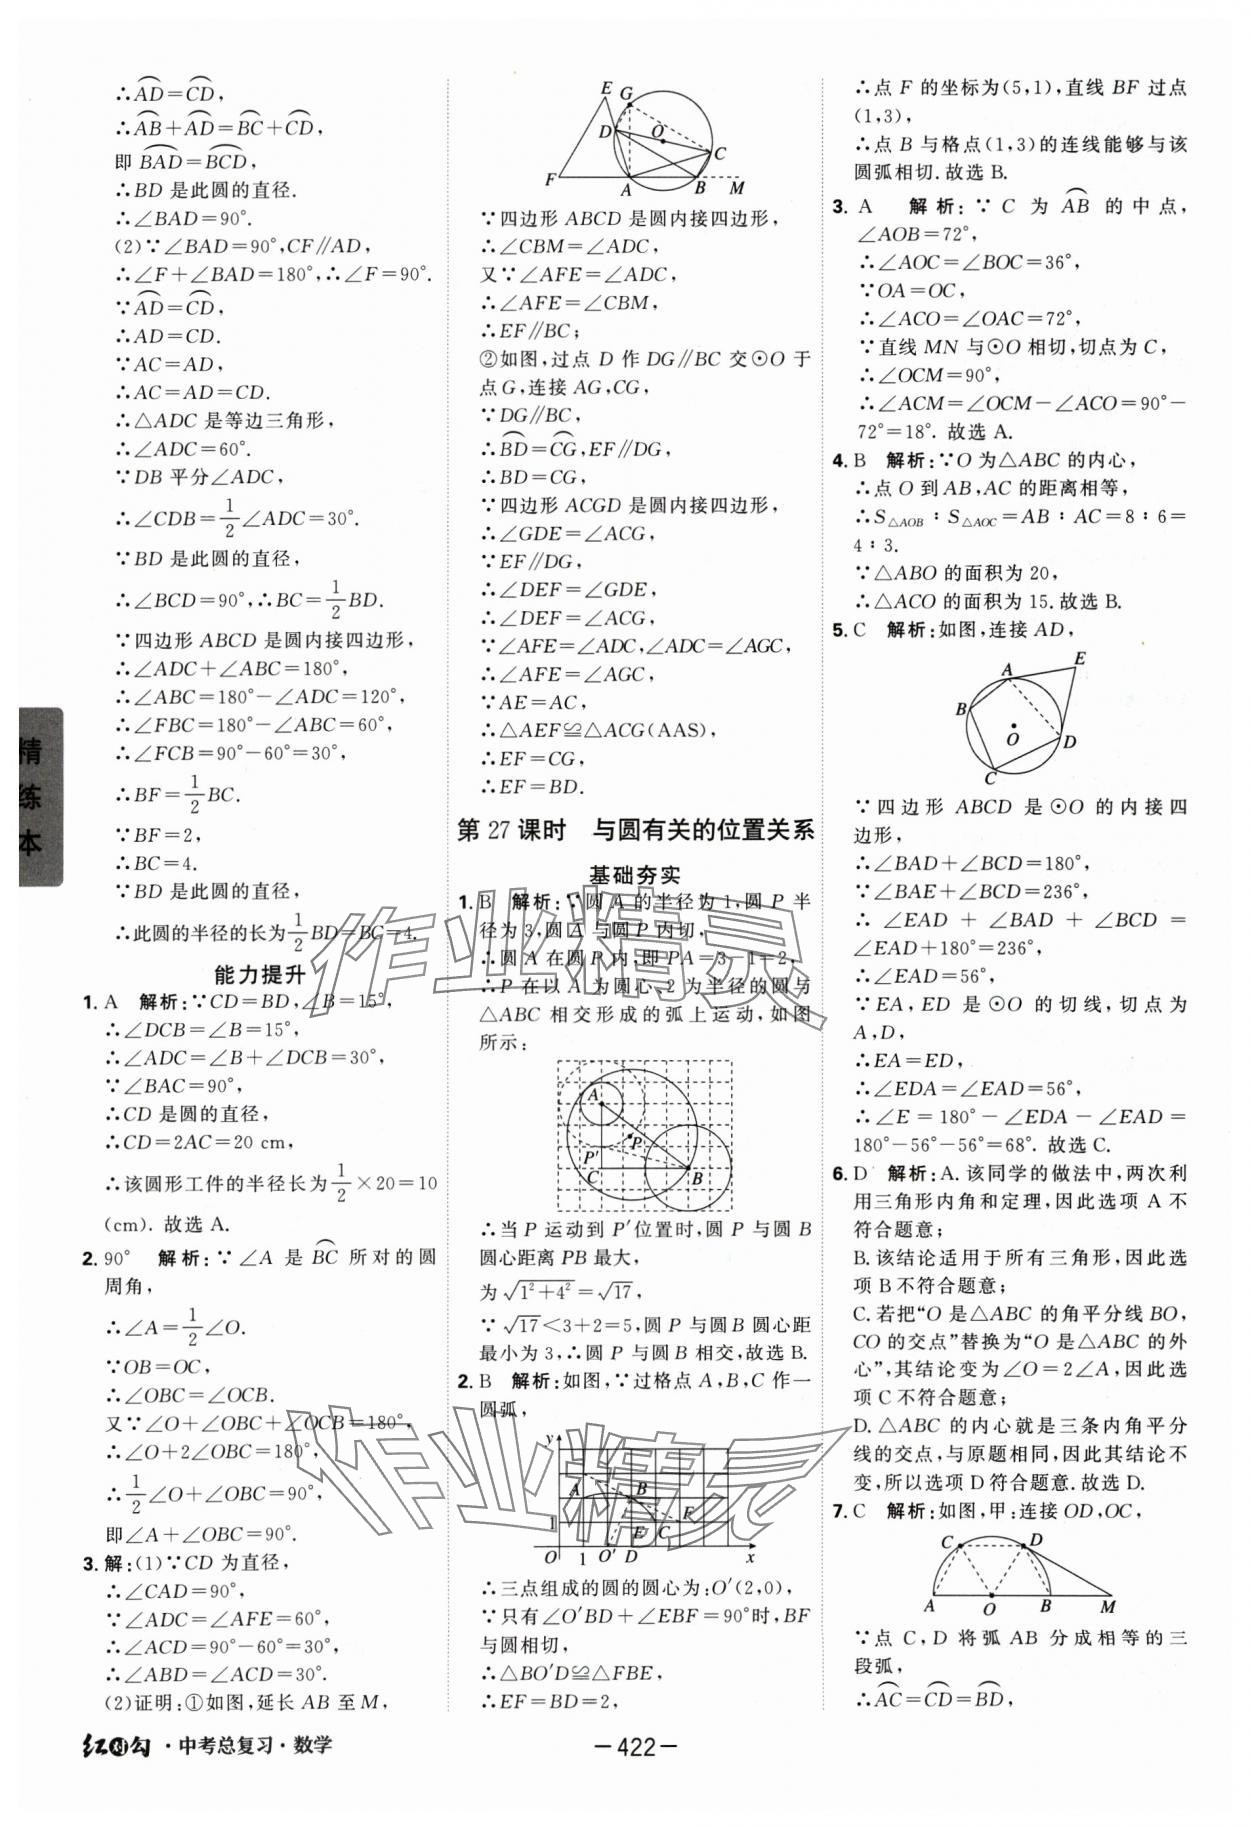 ∴AD=CD,
∴AB+AD=BC+CD,
即 BAD=BCD,
∴BD 是此圆的直径.
∴∠BAD=90°.
(2)∵∠BAD=90°,CF∥AD,
∴∠F+∠BAD=180°,∴∠F=90°.
∵AD=CD,
∴AD=CD.
∵AC=AD,
∴AC=AD=CD.
∴△ADC 是等边三角形,
∴∠ADC=60°.
∵DB 平分∠ADC,
∴∠CDB=1/2∠ADC=30°.
∵BD 是此圆的直径,
∴∠BCD=90°,∴BC=1/2BD.
∵四边形 ABCD 是圆内接四边形,
∴∠ADC+∠ABC=180°,
∴∠ABC=180°-∠ADC=120°,
∴∠FBC=180°-∠ABC=60°,
∴∠FCB=90°-60°=30°,
∴BF=1/2BC.
∵BF=2,
∴BC=4.
∵BD 是此圆的直径,
∴此圆的半径的长为1/2BD=BC=4.
能力提升
1. A 解析:∵CD=BD,∠B=15°,
∴∠DCB=∠B=15°,
∴∠ADC=∠B+∠DCB=30°,
∵∠BAC=90°,
∴CD 是圆的直径,
∴CD=2AC=20 cm,
∴该圆形工件的半径长为1/2×20=10
(cm). 故选 A.
2. 90° 解析:∵∠A 是 BC 所对的圆
周角,
∴∠A=1/2∠O.
∵OB=OC,
∴∠OBC=∠OCB.
又∵∠O+∠OBC+∠OCB=180°,
∴∠O+2∠OBC=180°,
∴1/2∠O+∠OBC=90°,
即∠A+∠OBC=90°.
3. 解:(1)∵CD 为直径,
∴∠CAD=90°,
∵∠ADC=∠AFE=60°,
∴∠ACD=90°-60°=30°,
∴∠ABD=∠ACD=30°.
(2)证明:①如图,延长 AB 至 M,
E
G
D
O
C
F
A
B
M
∵四边形 ABCD 是圆内接四边形,
∴∠CBM=∠ADC,
又∵∠AFE=∠ADC,
∴∠AFE=∠CBM,
∴EF∥BC;
②如图,过点 D 作 DG∥BC 交⊙O 于
点 G,连接 AG,CG,
∵DG∥BC,
∴BD=CG,EF∥DG,
∴BD=CG,
∵四边形 ACGD 是圆内接四边形,
∴∠GDE=∠ACG,
∵EF∥DG,
∴∠DEF=∠GDE,
∴∠DEF=∠ACG,
∵∠AFE=∠ADC,∠ADC=∠AGC,
∴∠AFE=∠AGC,
∵AE=AC,
∴△AEF≌△ACG(AAS),
∴EF=CG,
∴EF=BD.
第 27 课时 与圆有关的位置关系
基础夯实
1. B 解析:∵圆 A 的半径为 1,圆 P 半
径为 3,圆 A 与圆 P 内切,
∴圆 A 在圆 P 内,即 PA=3-1=2,
∴P 在以 A 为圆心、2 为半径的圆与
△ABC 相交形成的弧上运动,如图
所示:
A
P
P′
C
B
∴当 P 运动到 P′位置时,圆 P 与圆 B
圆心距离 PB 最大,
为 √(1²+4²)=√17,
∵√17<3+2=5,圆 P 与圆 B 圆心距
最小为 3,∴圆 P 与圆 B 相交,故选 B.
2. B 解析:如图,∵过格点 A,B,C 作一
圆弧,
y
A
B
1
E
C
F
O
1
O′
D
x
∴三点组成的圆的圆心为:O′(2,0),
∵只有∠O′BD+∠EBF=90°时,BF
与圆相切,
∴△BO′D≌△FBE,
∴EF=BD=2,
∴点 F 的坐标为(5,1),直线 BF 过点
(1,3),
∴点 B 与格点(1,3)的连线能够与该
圆弧相切.故选 B.
3. A 解析:∵C 为 AB 的中点,
∠AOB=72°,
∴∠AOC=∠BOC=36°,
∵OA=OC,
∴∠ACO=∠OAC=72°,
∵直线 MN 与⊙O 相切,切点为 C,
∴∠OCM=90°,
∴∠ACM=∠OCM-∠ACO=90°-
72°=18°. 故选 A.
4. B 解析:∵O 为△ABC 的内心,
∴点 O 到 AB,AC 的距离相等,
∴S△AOB∶S△AOC=AB∶AC=8∶6=
4∶3.
∵△ABO 的面积为 20,
∴△ACO 的面积为 15.故选 B.
5. C 解析:如图,连接 AD,
A
E
B
O
D
C
∵四边形 ABCD 是⊙O 的内接四
边形,
∴∠BAD+∠BCD=180°,
∵∠BAE+∠BCD=236°,
∴∠EAD+∠BAD+∠BCD=
∠EAD+180°=236°,
∴∠EAD=56°,
∵EA,ED 是⊙O 的切线,切点为
A,D,
∴EA=ED,
∴∠EDA=∠EAD=56°,
∴∠E=180°-∠EDA-∠EAD=
180°-56°-56°=68°. 故选 C.
6. D 解析:A. 该同学的做法中,两次利
用三角形内角和定理,因此选项 A 不
符合题意;
B. 该结论适用于所有三角形,因此选
项 B 不符合题意;
C. 若把“O 是△ABC 的角平分线 BO,
CO 的交点”替换为“O 是△ABC 的外
心”,其结论变为∠O=2∠A,因此选
项 C 不符合题意;
D. △ABC 的内心就是三条内角平分
线的交点,与原题相同,因此其结论不
变,所以选项 D 符合题意.故选 D.
7. C 解析:如图,甲:连接 OD,OC,
C
D
A
O
B
M
∵点 C,D 将弧 AB 分成相等的三
段弧,
∴AC=CD=BD,
精练本
作业精灵
作业精灵
红对勾·中考总复习·数学
-422-